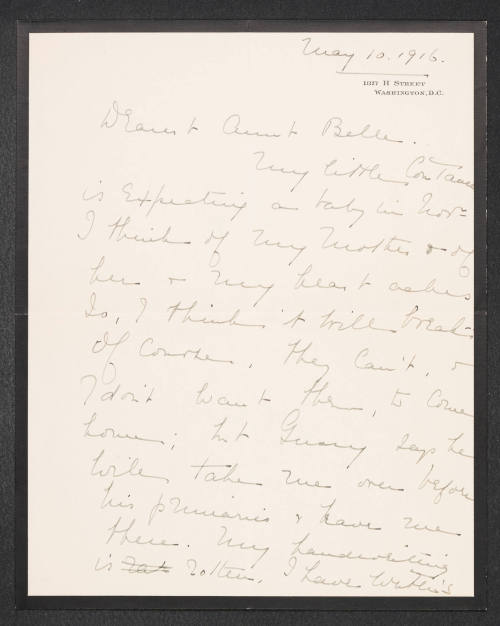 May 10. 1916.
1327 H Street
Washington, D.C.
Dearest Aunt Belle.
My little Constance
is expecting a baby in Nov-
I think of my mother & of
her & my heart aches
So, I think it will break-
Of course, they can't, &
I don't want them, to come
home; but Gussy says he
will take me over before
his primaries & leave me
there. My handwriting
is rotten. I have